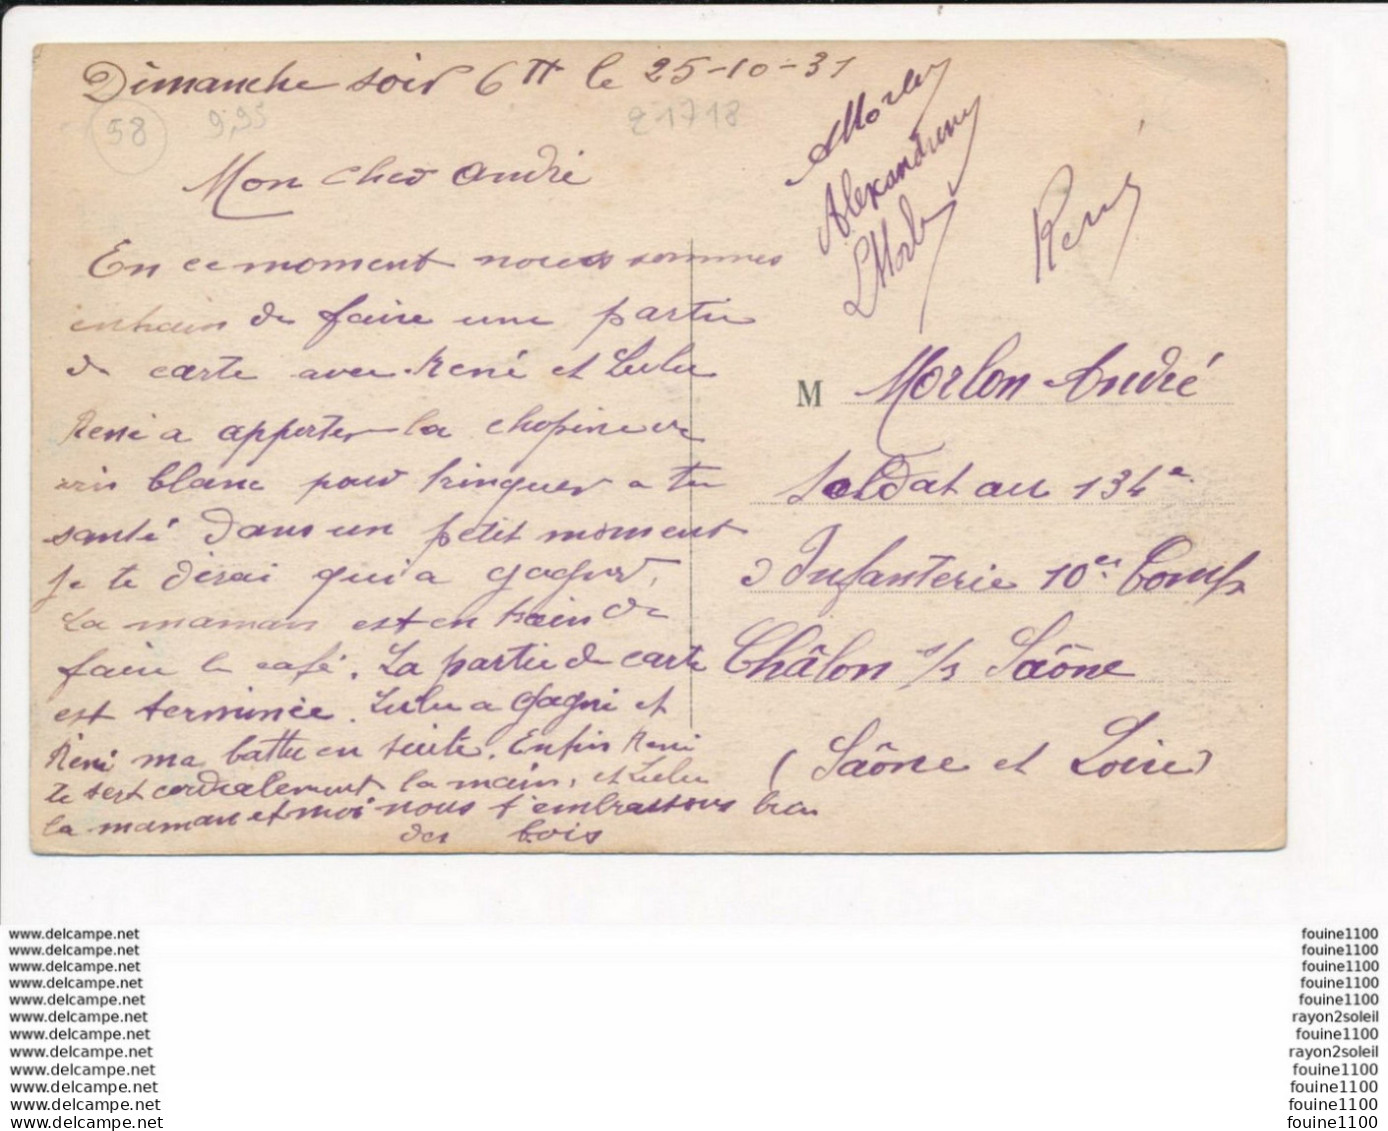 Dimanche soir 6H le 25-10-31
58
9,95
21718
Mon cher André
En ce moment nous sommes
entrain de faire une partie
de carte avec René et Lulu
René a apporter la chopine de
vin blanc pour trinquer a ta
santé dans un petit moment
je te dirai qui a gagner.
La maman est en train de
faire le café. La partie de carte
est terminée. Lulu a gagné et
René ma battu en suite. Enfin René
te sert cordialement la main, et Lulu
la maman et moi nous t'embrassons bien
des bois
Alexandrine
René
M Morlon André
Soldat au 134e
d'Infanterie 10e Comp
Châlon s/s Saône
(Saône et Loire)
www.delcampe.net fouine1100
www.delcampe.net fouine1100
www.delcampe.net fouine1100
www.delcampe.net fouine1100
www.delcampe.net fouine1100
www.delcampe.net rayon2soleil
www.delcampe.net fouine1100
www.delcampe.net rayon2soleil
www.delcampe.net fouine1100
www.delcampe.net fouine1100
www.delcampe.net fouine1100
www.delcampe.net fouine1100